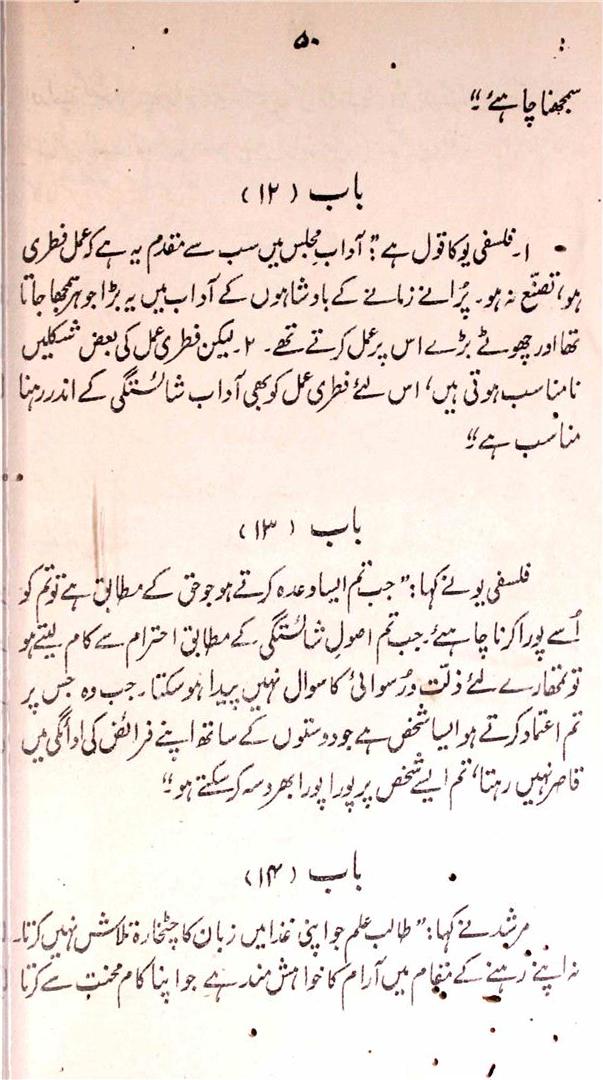 ۵۰
سمجھنا چاہئے۔"
باب (۱۲)
۱۔ فلسفی یو کا قول ہے: "آدابِ مجلس میں سب سے مقدم یہ ہے کہ عمل فطری
ہو، تصنّع نہ ہو۔ پُرانے زمانے کے بادشاہوں کے آداب میں یہ بڑا جوہر سمجھا جاتا
تھا اور چھوٹے بڑے اس پر عمل کرتے تھے۔ ۲۔ لیکن فطری عمل کی بعض شکلیں
نامناسب ہوتی ہیں، اس لئے فطری عمل کو بھی آداب شائستگی کے اندر رہنا
مناسب ہے"
باب (۱۳)
فلسفی یو نے کہا: "جب تم ایسا وعدہ کرتے ہو جو حق کے مطابق ہے تو تم کو
اُسے پورا کرنا چاہئے۔ جب تم اصولِ شائستگی کے مطابق احترام سے کام لیتے ہو
تو تمھارے لئے ذلّت و رُسوائی کا سوال نہیں پیدا ہو سکتا۔ جب وہ جس پر
تم اعتماد کرتے ہو ایسا شخص ہے جو دوستوں کے ساتھ اپنے فرائض کی ادائگی میں
قاصر نہیں رہتا، تم ایسے شخص پر پورا پورا بھروسہ کر سکتے ہو۔"
باب (۱۴)
مرشد نے کہا: "طالب علم جو اپنی غذا میں زبان کا چٹخارہ تلاش نہیں کرتا۔
نہ اپنے رہنے کے مقام میں آرام کا خواہش مند ہے جو اپنا کام محنت سے کرتا